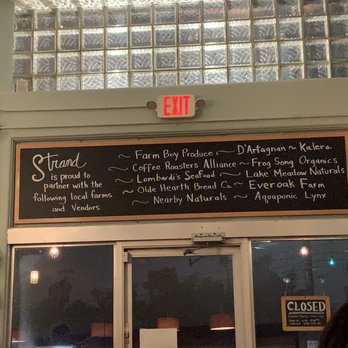 EXIT
Strand
is proud to
partner with the
following local farms
and Vendors
~ Farm Boy Produce ~ D'Artagnan ~ Kalera
~ Coffee Roasters Alliance ~ Frog Song Organics
~ Lombardi's Seafood ~ Lake Meadow Naturals
~ Olde Hearth Bread Co. ~ Everoak Farm
~ Nearby Naturals ~ Aquaponic Lynx
CLOSED